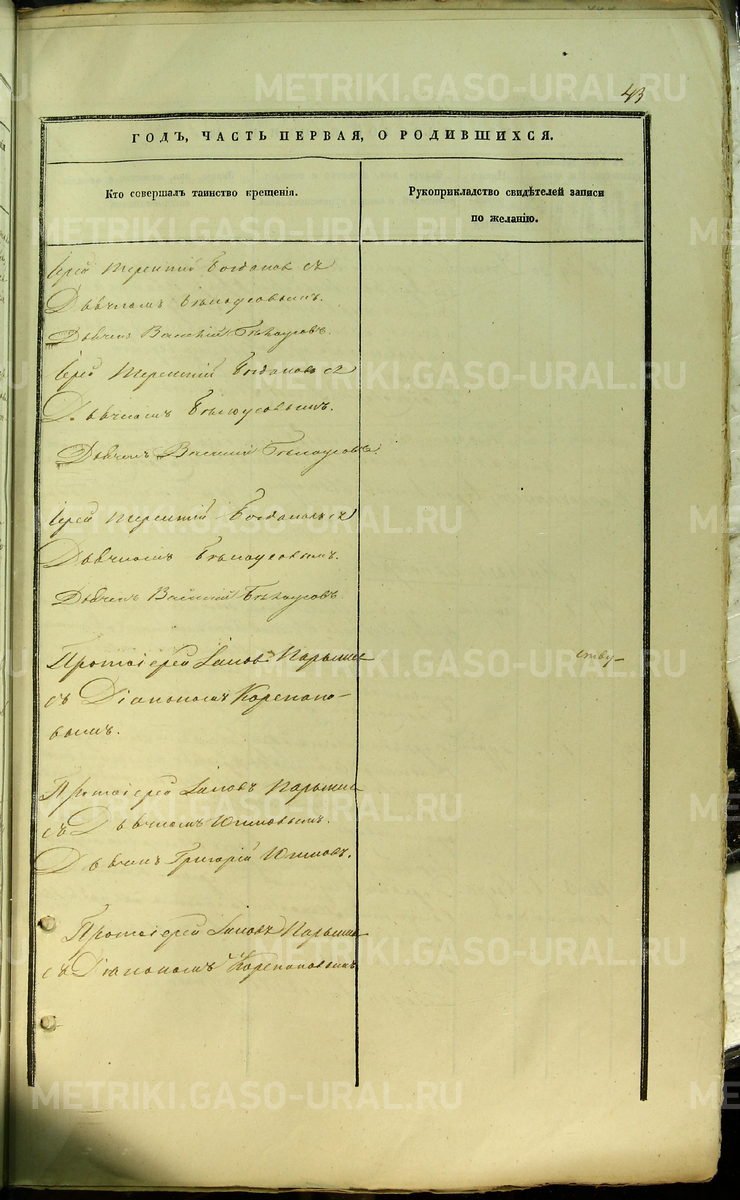 43
ГОДЪ, ЧАСТЬ ПЕРВАЯ, О РОДИВШИХСЯ.
Кто совершалъ таинство крещенія.
Рукоприкладство свидѣтелей записи
по желанію.
Іерей Терентій Богданов съ
Дьячкомъ Бѣлоусовымъ.
Дьячекъ Василій Бѣлоусовъ.
Іерей Терентій Богданов съ
Дьячкомъ Бѣлоусовымъ.
Дьячекъ Василій Бѣлоусовъ.
Іерей Терентій Богданов съ
Дьячкомъ Бѣлоусовымъ.
Дьячекъ Василій Бѣлоусовъ
Протоіерей Іаковъ
съ Діакономъ Карпано-
вымъ.
Протоіерей Іаковъ
съ Дьячкомъ
Дьячекъ Григорій
Протоіерей Іаковъ
съ Діакономъ
METRIKI.GASO-URAL.RU